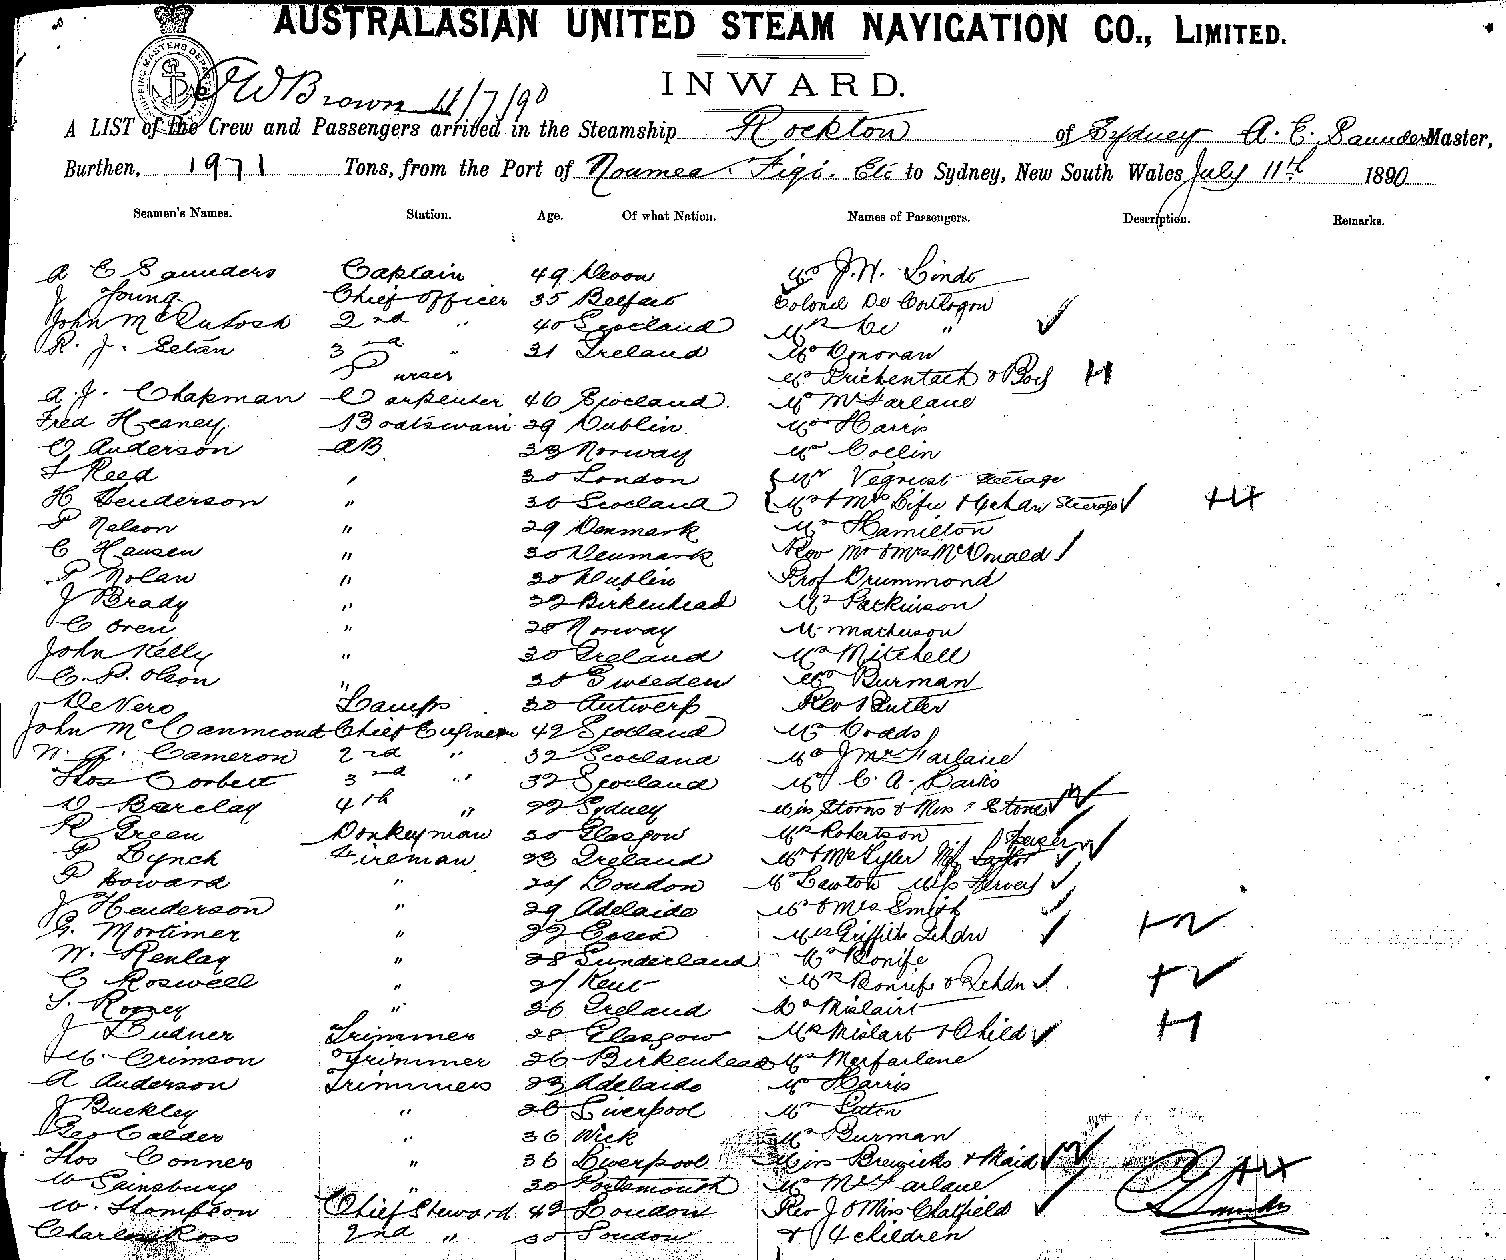 AUSTRALASIAN UNITED STEAM NAVIGATION CO., LIMITED.
J W Brown 11/7/90
INWARD.
A LIST of the Crew and Passengers arrived in the Steamship Rockton of Sydney A. E. Saunders Master,
Burthen, 1971 Tons, from the Port of Noumea Figi. Etc to Sydney, New South Wales July 11th 1890
Seamen's Names. Station. Age. Of what Nation. Names of Passengers. Description. Remarks.
A E Saunders Captain 49 Devon Mr J.W. Lindo
J Young Chief Officer 35 Belfast Colonel De
John McIntosh 2nd " 40 Scotland Mrs De "
R. J. 3rd " 31 Ireland Mr Donovan
Purser Mr & Boy
A. J. Chapman Carpenter 46 Scotland Mr McFarlane
Fred Heaney Boatswain 29 Dublin Mr Harris
O Anderson AB 23 Norway Mr Collin
F Reed " 30 London Mr Steerage
H Henderson " 30 Scotland Mr & Mrs Steerage
P Nelson " 29 Denmark Mr Hamilton
C Hansen " 30 Denmark Rev Mr & Mrs McDonald
P Nolan " 30 Dublin Prof Drummond
J Brady " 22 Birkenhead Mr Parkinson
C Oren " 28 Norway Mr Matheson
John Kelly " 30 Ireland Mr Mitchell
C. P. Olson " 30 Sweeden Mr Burman
De Vero Lamps 30 Antwerp Rev Butler
John McCammond Chief Engineer 42 Scotland Mr Dodds
W. A. Cameron 2nd " 32 Scotland Mr J McFarlane
Thos Corbett 3rd " 32 Scotland Mr C. A.
D Barclay 4th " 22 Sydney Miss Storns & Miss Stone
R Green Donkeyman 30 Glasgow Mrs Robertson
P Lynch Fireman 23 Ireland Mr & Mrs Tyler Miss
P Howard " 24 London Mr Lawton Miss
J Henderson " 29 Adelaide Mr & Mrs Smith
G. Mortimer " 22 Essex Mrs Griffiths
W. Henlay " 28 Sunderland Mr Bonife
G Roswell " 21 Kent Mrs Bonife & 2 chdn
T. Rooney " 26 Ireland
J Ludner Trimmer 28 Glasgow Mrs & Child
Crimson Trimmer 26 Birkenhead Mr Macfarlane
A Anderson Trimmers 23 Adelaide Mr Harris
J Buckley " 26 Liverpool Mr
Geo Calder " 36 Wick Mr Burman
Thos Conner " 36 Liverpool Miss & Maid
W Sainsbury " 30 Portsmouth Mr McFarlane
W. Thompson Chief Steward 42 London Rev J & Miss Chatfield
Charles Ross 2nd " 30 London & 4 children